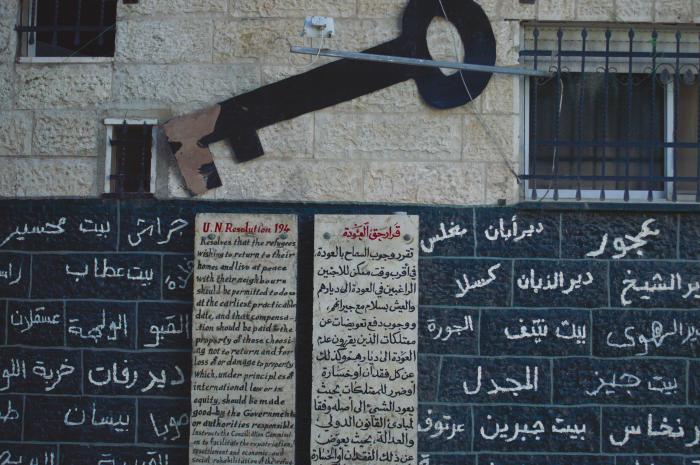 U.N. Resolution 194
Resolves that the refugees
wishing to return to their
homes and live at peace
with their neighbours
should be permitted to do so
at the earliest practicable
date, and that compensa-
tion should be paid to the
property of those choosi
ng not to return and for
loss of or damage to property
which, under principles of
international law or in
equity, should be made
good by the Governments
or authorities responsible
Instructs the Conciliation Commissi
on to facilitate the repatriation,
resettlement and economic and
social rehabilitation of the
قرار حق العودة
تقرر وجوب السماح بالعودة
في أقرب وقت ممكن للاجئين
الراغبين في العودة الى ديارهم
والعيش بسلام مع جيرانهم،
ووجوب دفع تعويضات عن
ممتلكات الذين يقررون علم
العودة الى ديارهم وكذلك
عن كل فقدان أو خسارة
أو ضرر للممتلكات بحيث
يعود الشيء الى أصله وفقا
لمبادئ القانون الدولي
والعدالة، بحيث يعوض
عن ذلك الفقدان أو الخسارة
خراش بيت محسير
بيت عطاب
القبو الولجة عسقلان
دير رفات خربة اللو
صوبا بيسان
عجور دير أبان مغلس
دير الشيخ دير الذبان كسلا
دير الهوى بيت نتيف الجورة
بيت جيز المجدل
دير نخاس بيت جبرين عرتوف